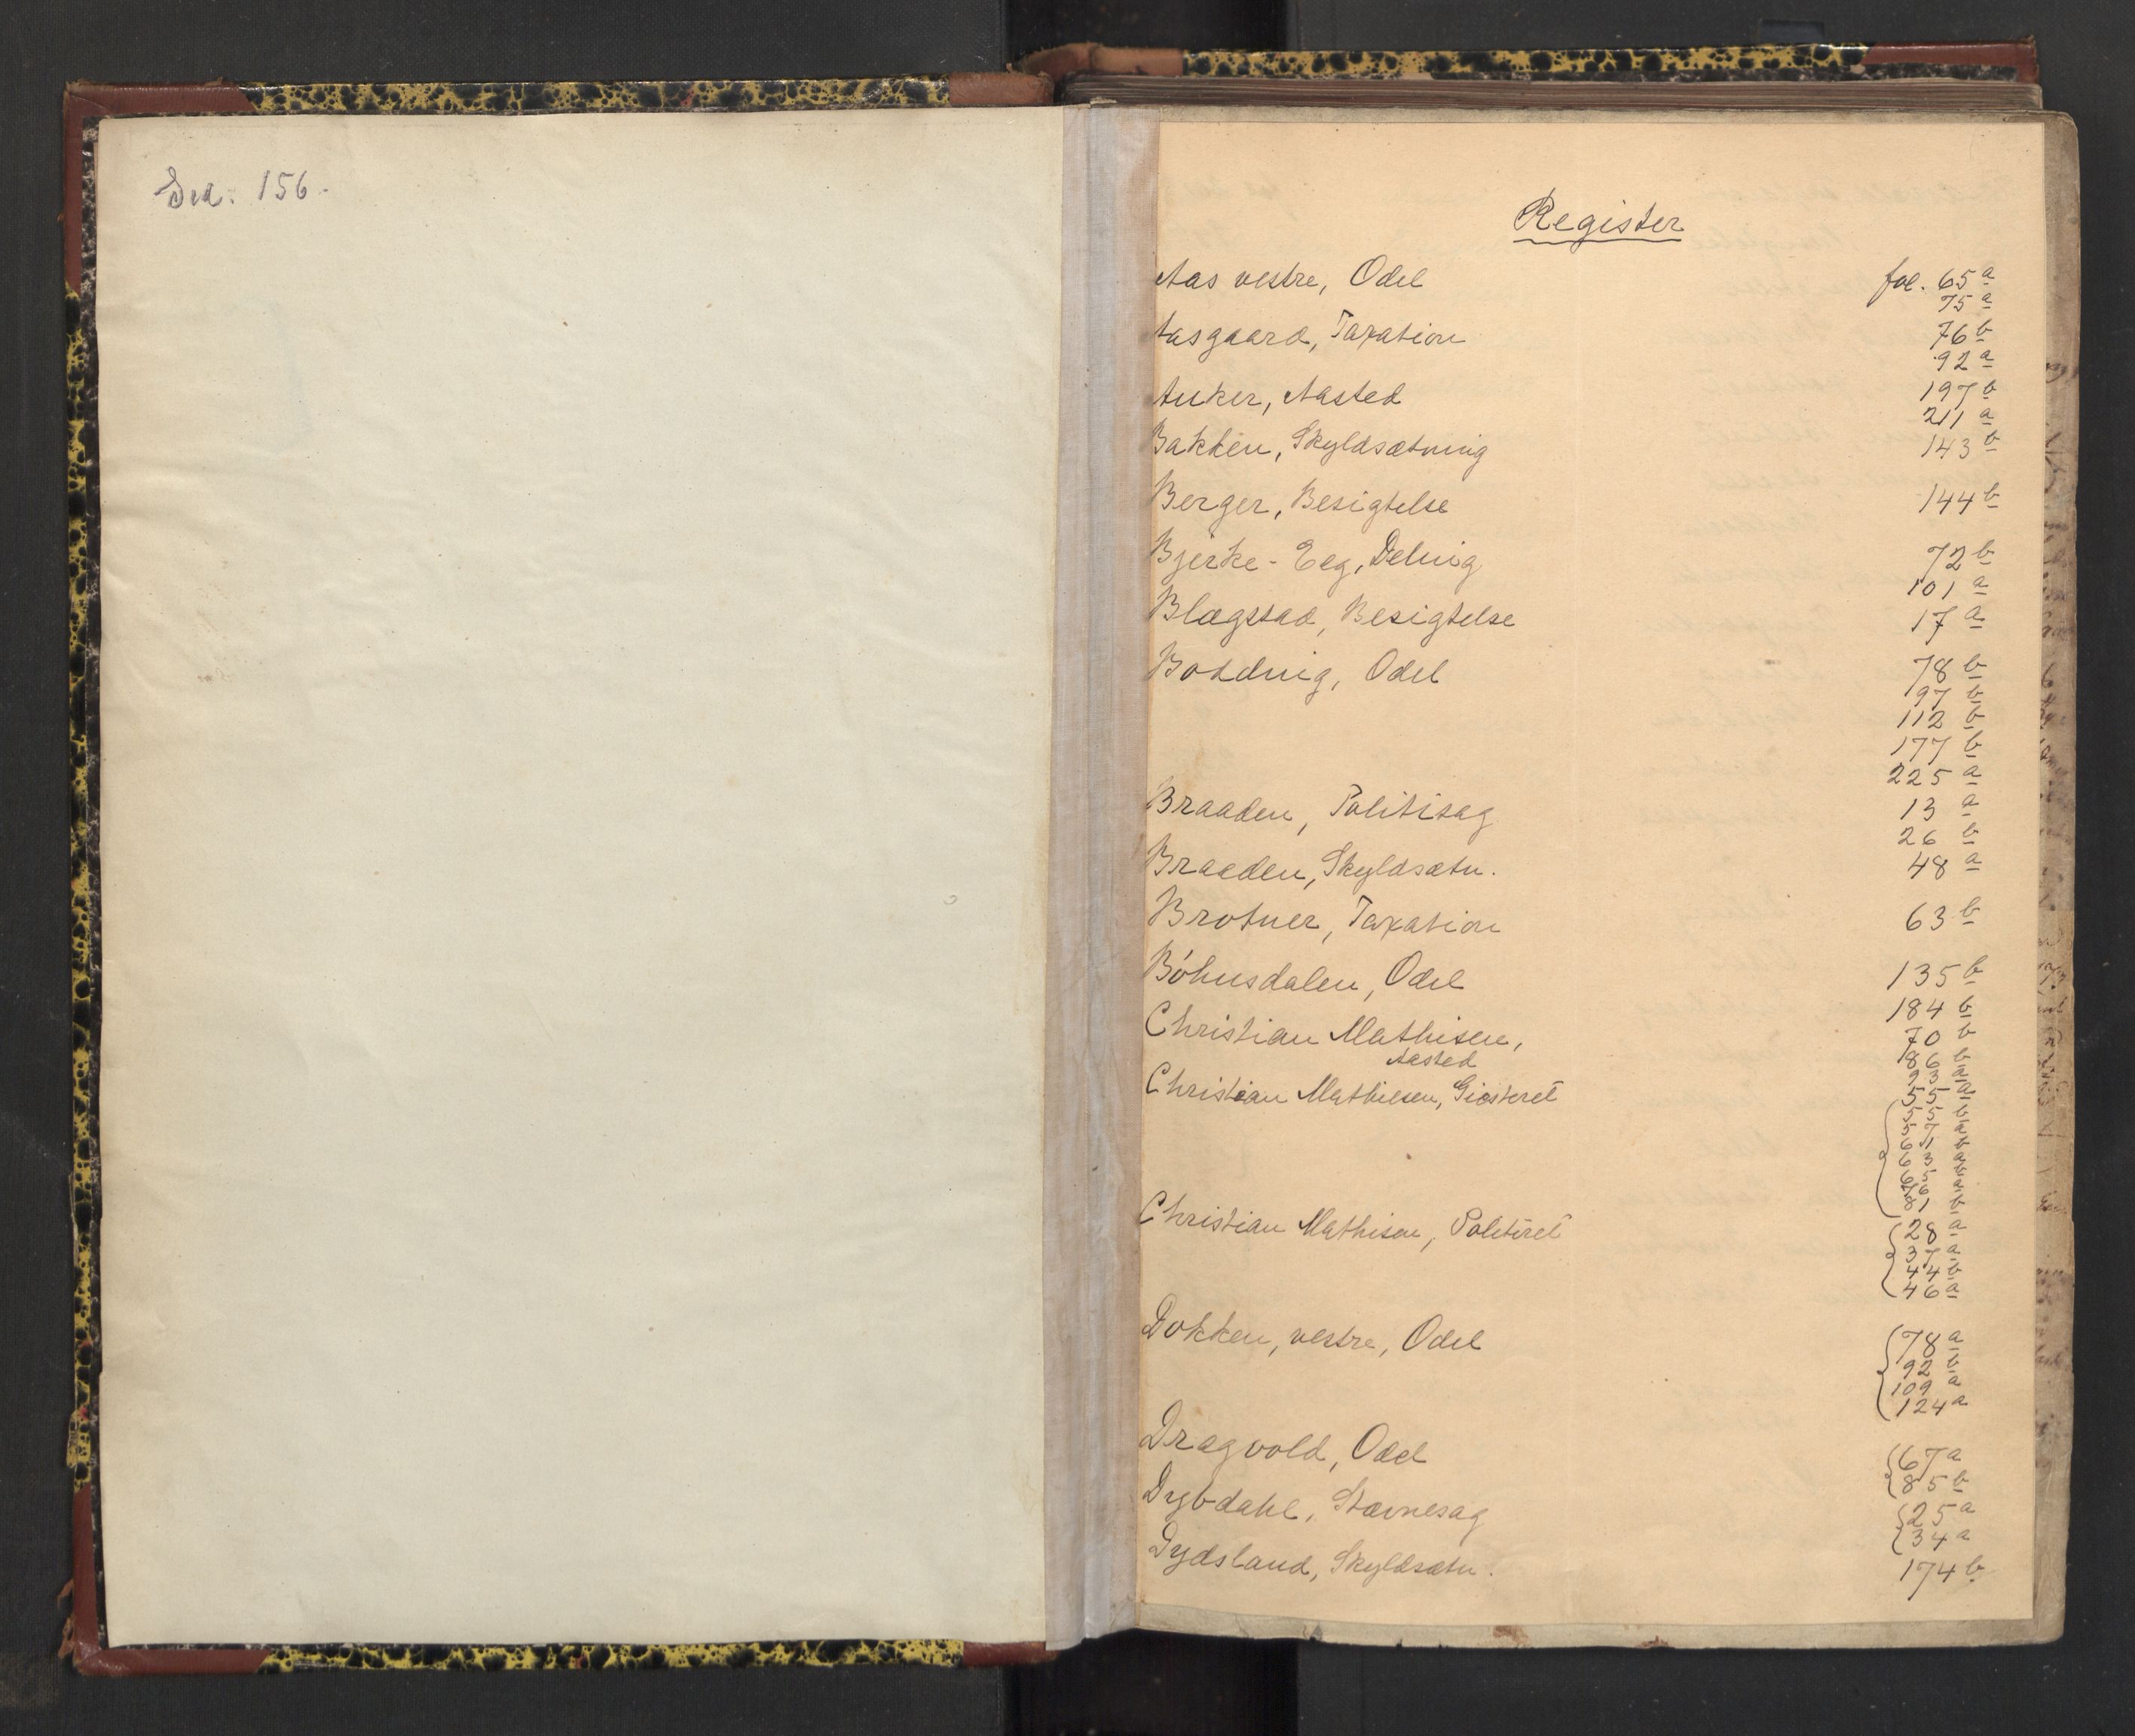 156.
Register
Aas vestre, Odel fol. 65 a
75 a
Aasgaard, Taxation 76 b
92 a
Anker, Aasted 197 b
211 a
Bakken, Skyldsætning 143 b
Berger, Besigtelse 144 b
Bjerke - Eeg, Deling 72 b
101 a
Blegstad, Besigtelse 17 a
Odel 78 b
97 b
112 b
177 b
225 a
Braaden, Politisag 13 a
26 b
Braaden, Skyldsætn. 48 a
Brotner, Taxation 63 b
Böhnsdalen, Odel 135 b
184 b
Christian Mathisen, 70 b
Aasted 86 b
93 a
Christian Mathiesen, Giesteret 55 a
55 b
57 a
61 b
63 a
65 b
81 b
Christian Mathisen, Politiret 28 a
37 a
44 b
46 a
Dokken, vestre, Odel 78 a
92 b
109 a
124 a
Dragvold, Odel 67 a
85 b
Dybdahl, Stævnesag 25 a
34 a
Dydsland, Skyldsætn. 174 b